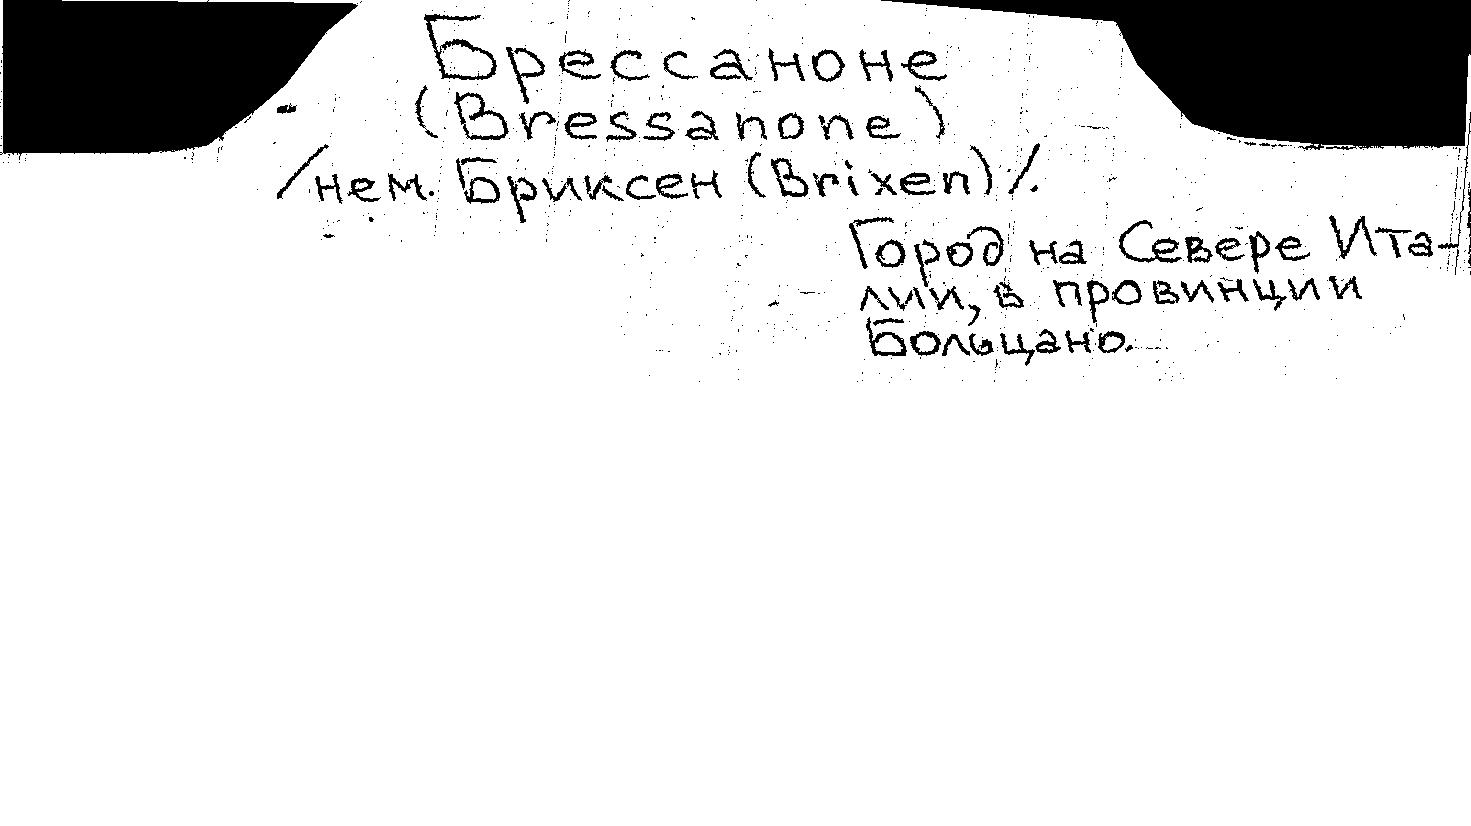 Брессаноне
(Bressanone)
/нем. Бриксен (Brixen)/.
Город на Севере Ита-
лии, в провинции
Больцано.